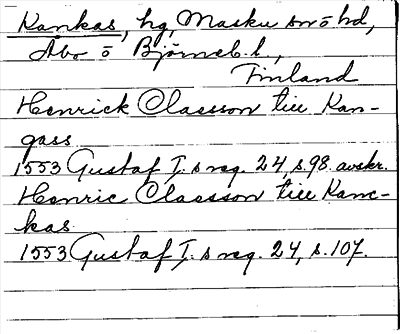 Kankas, hg, Masku snö hd,
Åbo o Björneb. l.,
Finland
Henrick Claesson till Kan-
gass
1553 Gustaf I:s reg. 24, s. 98. avskr.
Henric Claesson till Kanc-
kas
1553 Gustaf I:s reg. 24, s. 107.